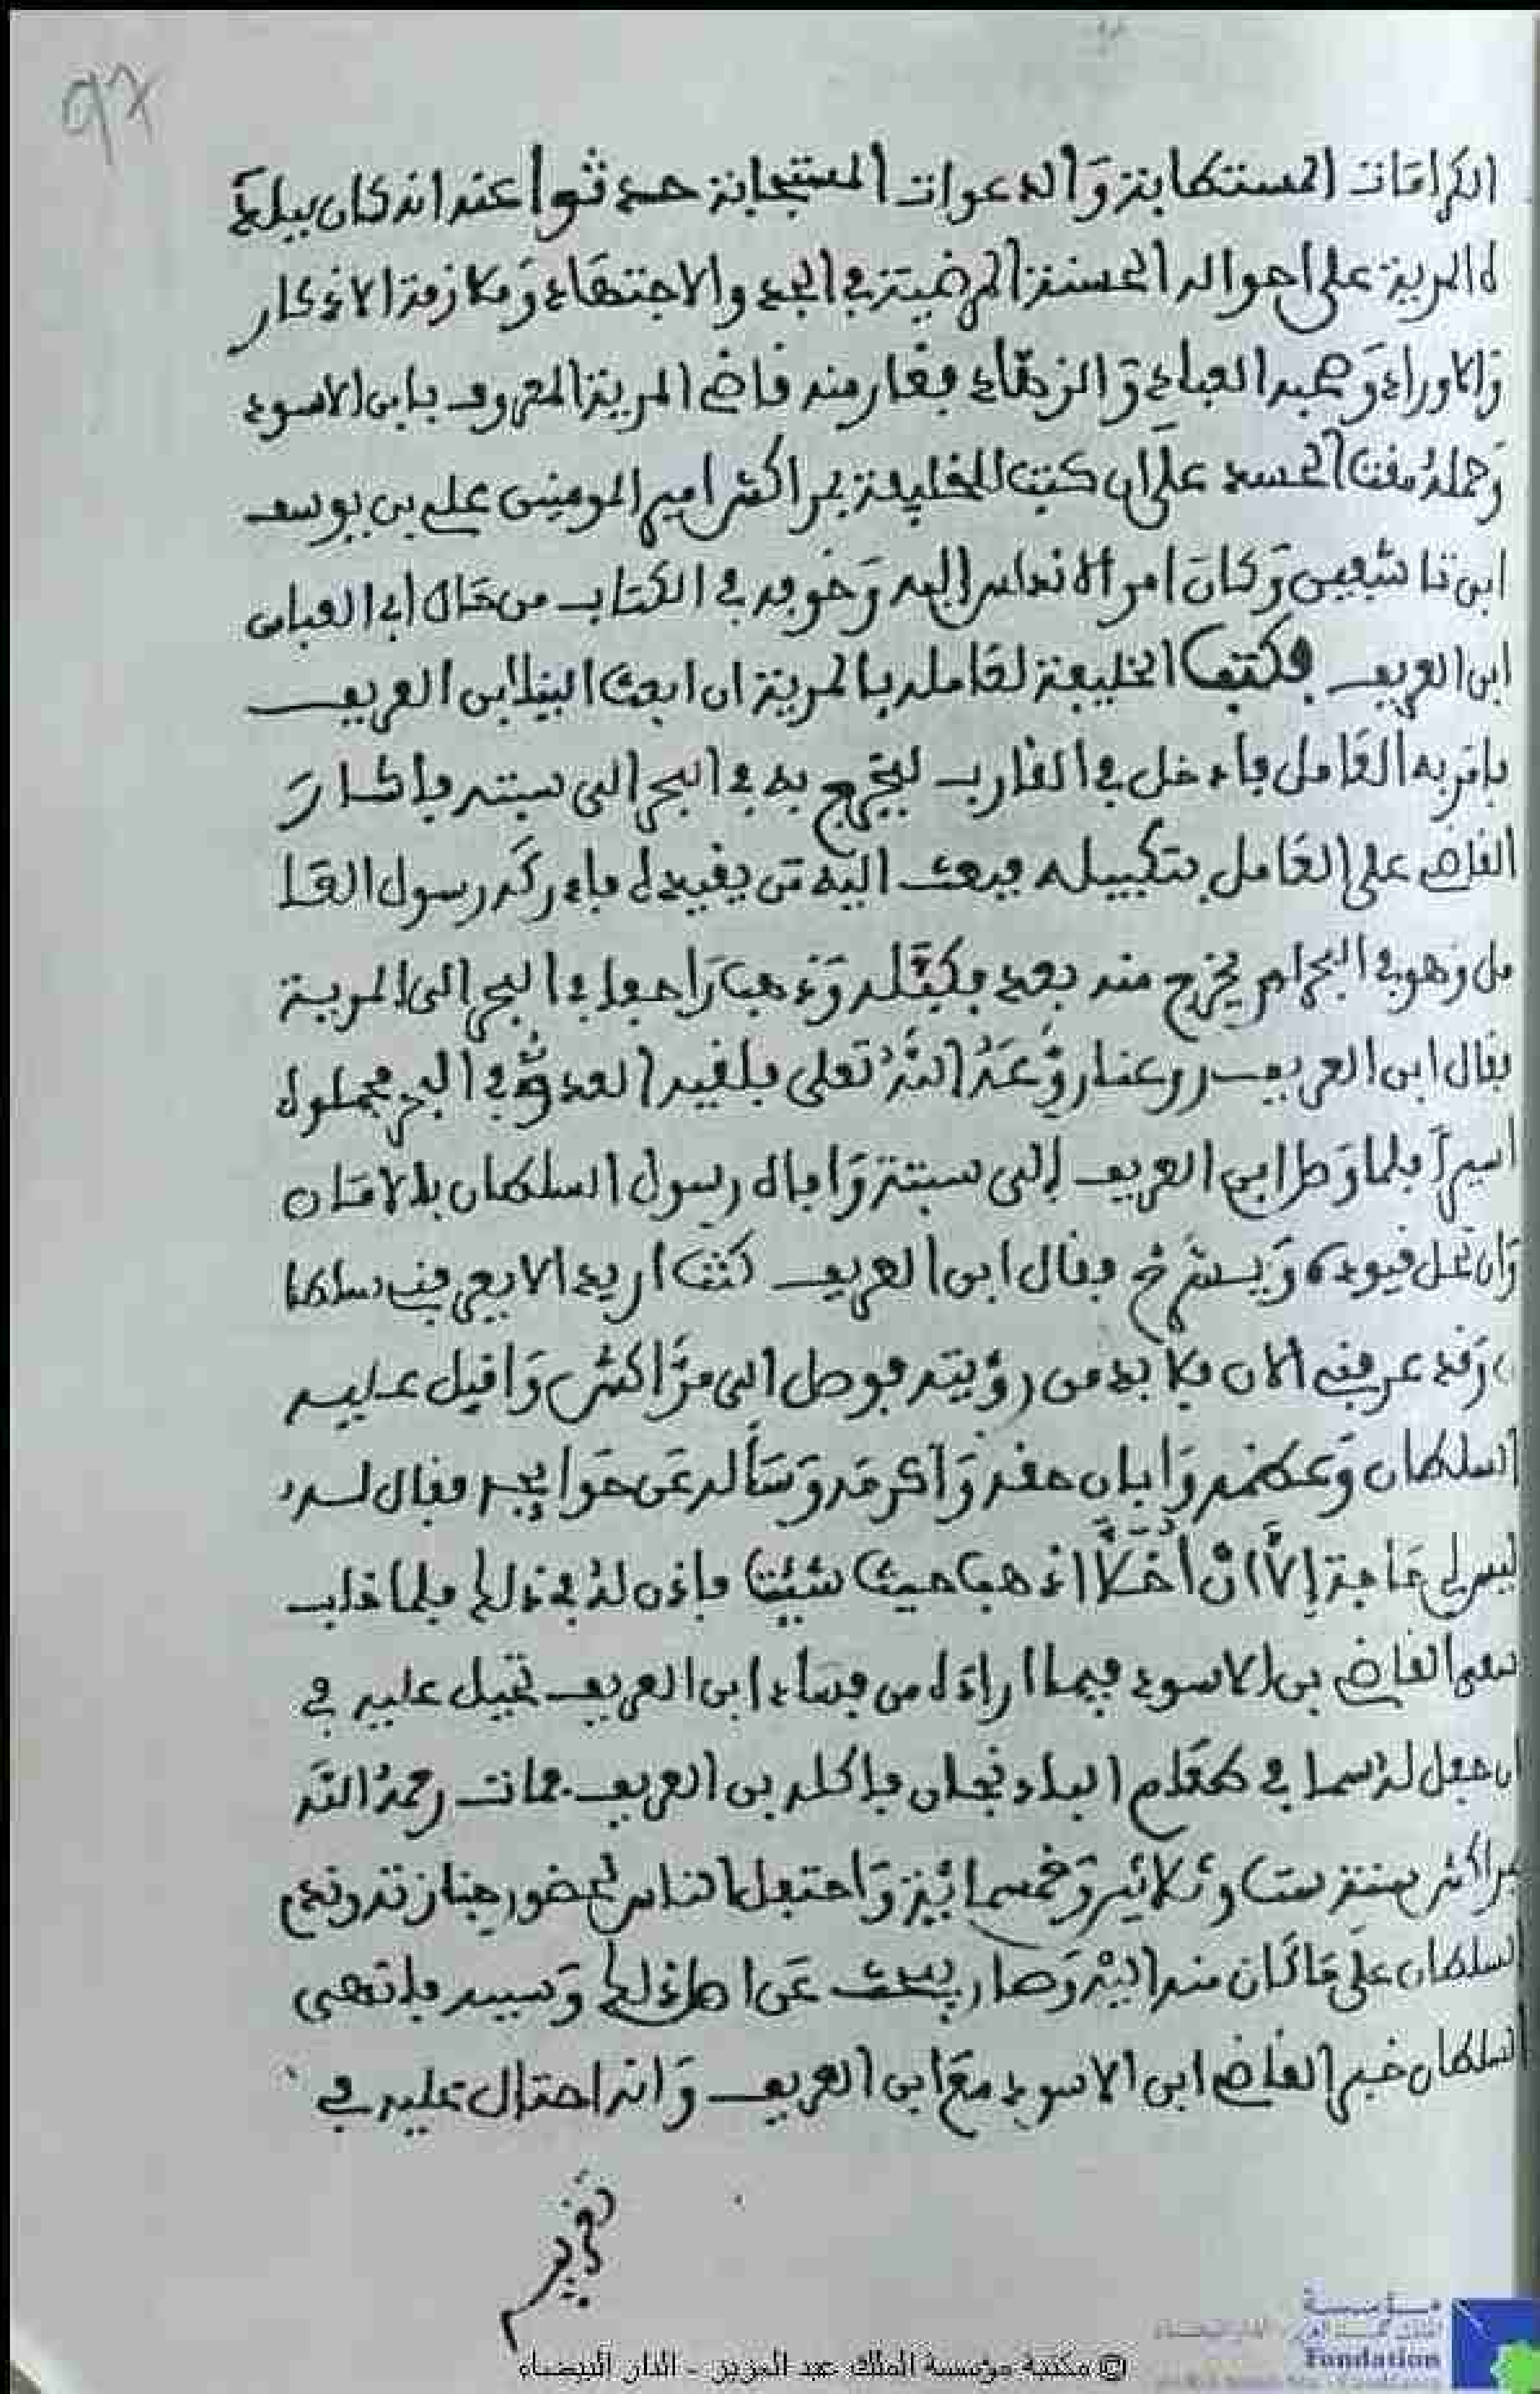 97
الكرامات المستطابة وَالدعوات المستجابة حدثوا عنه انه كان ببلد
ه المرية على احواله الحسنة المرضية في الجد والاجتهاد وَملازمة الاذكار
وَالاوراد وَصحبه العباد وَالزهاد فغار منه قاضى المرية المعروف بابن الاسود
وَحمله مقت الحسد علَى ان كتب للخليفة بمراكش امير المومنين على بن يوسف
ابن تاشفين وَكان امر الاندلس اليه وَخوفه في الكتاب من حَال ابى العباس
ابن العريف فكتب الخليفة لعَامله بالمرية ان ابعث الينا ابن العريف
فامر به العَامل فادخل في القارب ليخرج به في البحر الى سبته فاشار
القاضى على العَامل بتكبيله فبعث اليه من يقيده فادركه رسول العَا
مل وَهو في البحر لم يخرج منه بعد فكبَّله وَذهب رَاجعا في البحر الى المرية
فقال ابن العريف روعنا روَّعَهُ اللَّهُ تعلى فلقيه العدوُّ في البحر فحملوه
اسيراً فلما وَصل ابن العريف إلى سبتة وَافاه رسول السلطان بالامَان
وَان تحل قيوده وَيسرح فقال ابن العريف كنت اريد الا يعرفنى سلطا
ن وَقد عرفنى الان فلا بد من رؤيته فوصل الى مرَّاكش وَاقبل عليه
السلطان وَعظمه وَابان حقه وَاكرمه وَسَأله عَن حَوايجه فقال له
ليس لي حَاجة إِلَّا انْ أُخَلَّا اذهب حيث شئت فاذن لهُ في ذلك فلما خاب
سعى القاضى بن الاسود فيما اراده من فسَاد ابن العريف تحيل عليه في
ان جعل له سما في طعَام البادنجان فاكله بن العريف فمات رحمهُ اللَّه
بمراكش سنة ست وثلاثين وَخمسمائة وَاحتفل الناس لحضور جنازته وندم
السلطان علَى مَا كَان منه اليه وَصار يبحث عَن اصل ذلك وَسببه فانتهى
السلطان خبر القاضى ابن الاسود معَ ابن العريف وَانه احتال عليه في
© مكتبة مؤسسة الملك عبد العزيز - الدار البيضاء
مؤسسة
Fondation